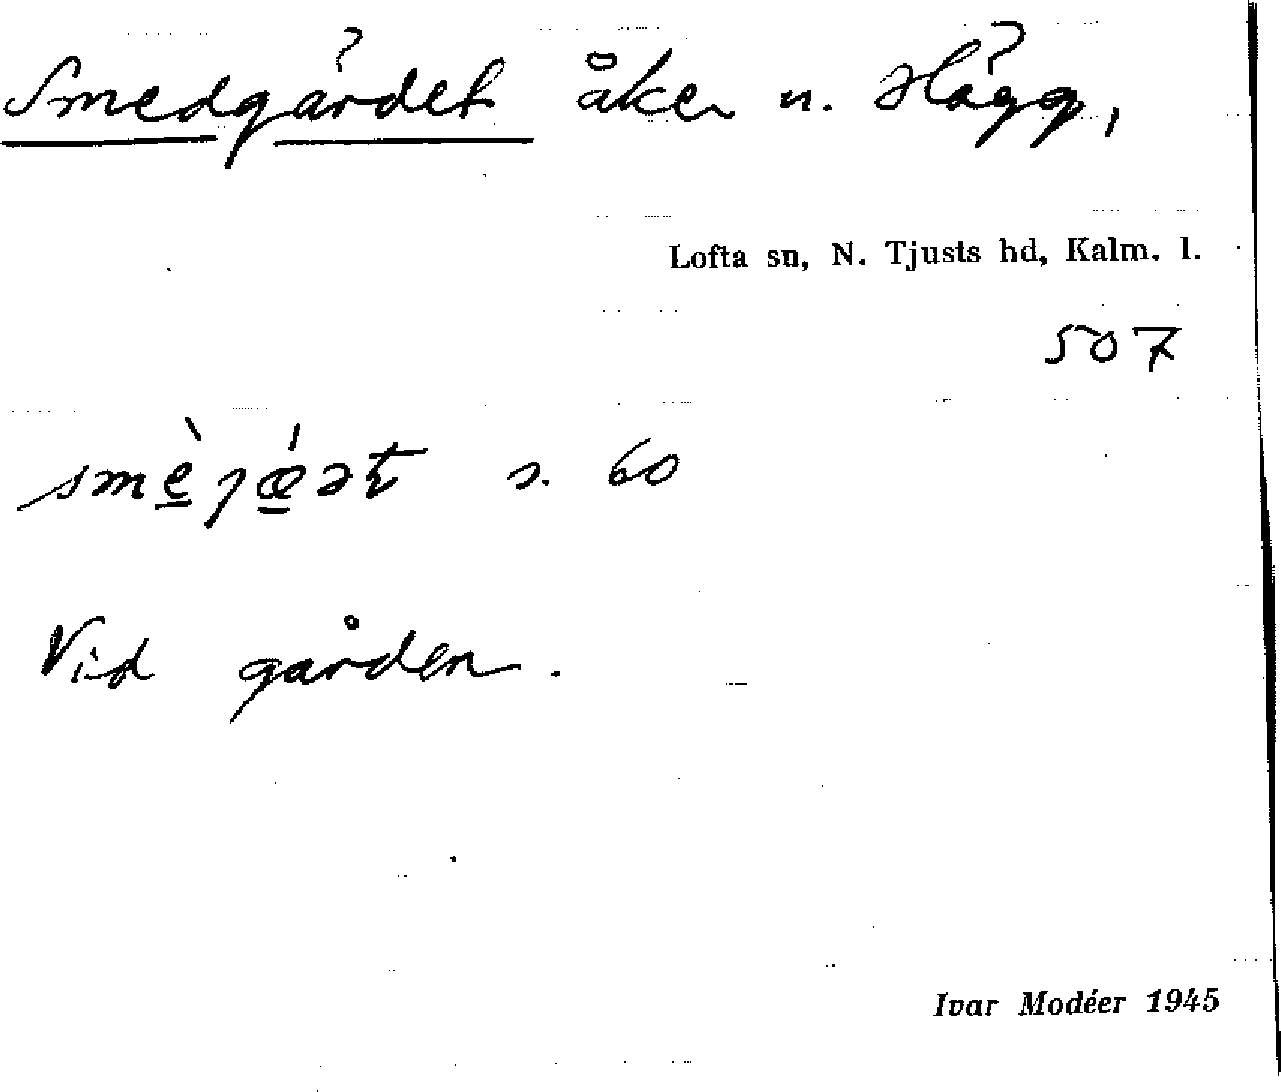 Smedgärdet åker u. Hägg,
Lofta sn, N. Tjusts hd, Kalm. l.
507
smè̱jǽ̱ət s. 60
Vid gården.
Ivar Modéer 1945